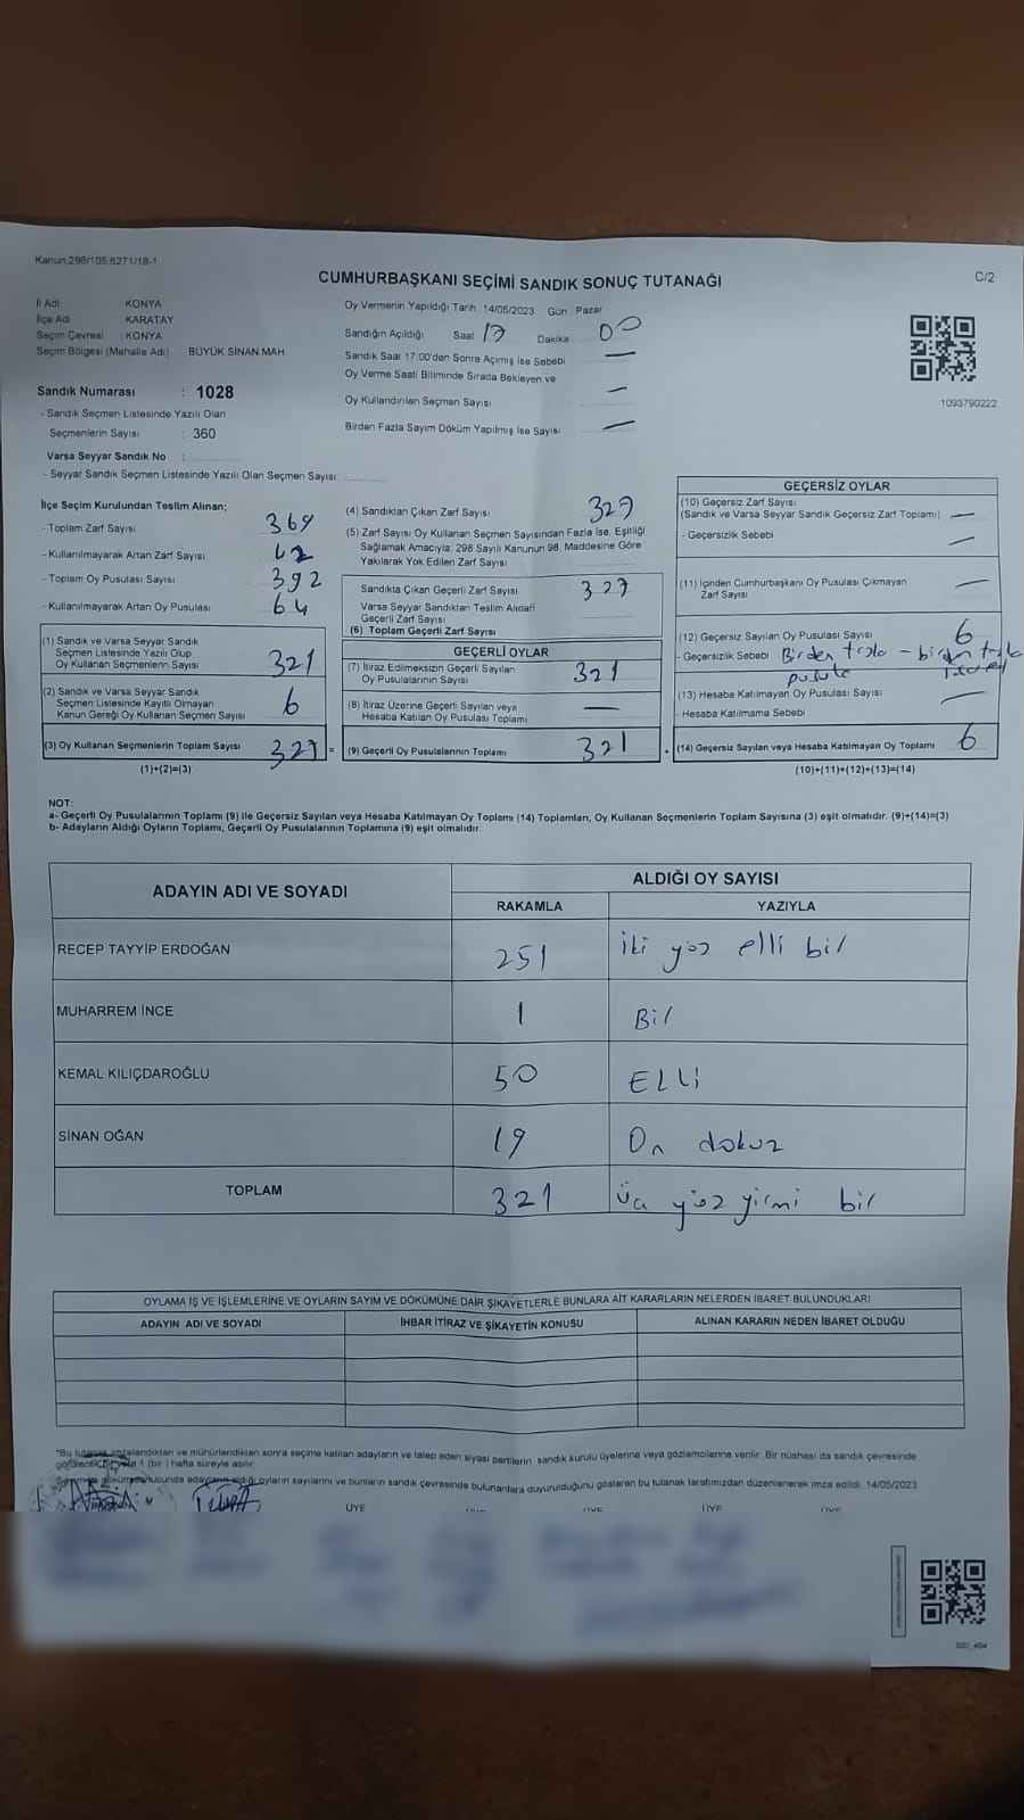 Kanun:298/105.6271/18-1
CUMHURBAŞKANI SEÇİMİ SANDIK SONUÇ TUTANAĞI
C/2
İl Adı : KONYA
İlçe Adı : KARATAY
Seçim Çevresi : KONYA
Seçim Bölgesi (Mahalle Adı) : BÜYÜK SİNAN MAH.
Oy Vermenin Yapıldığı Tarih: 14/05/2023 Gün: Pazar
Sandığın Açıldığı Saat 17 Dakika 00
Sandık Saat 17:00'den Sonra Açılmış İse Sebebi —
Oy Verme Saati Bitiminde Sırada Bekleyen ve
Oy Kullandırılan Seçmen Sayısı —
Birden Fazla Sayım Döküm Yapılmış İse Sayısı —
1093790222
Sandık Numarası : 1028
- Sandık Seçmen Listesinde Yazılı Olan
Seçmenlerin Sayısı : 360
Varsa Seyyar Sandık No :
- Seyyar Sandık Seçmen Listesinde Yazılı Olan Seçmen Sayısı:
İlçe Seçim Kurulundan Teslim Alınan;
- Toplam Zarf Sayısı 369
- Kullanılmayarak Artan Zarf Sayısı 42
- Toplam Oy Pusulası Sayısı 392
- Kullanılmayarak Artan Oy Pusulası 64
(1) Sandık ve Varsa Seyyar Sandık
Seçmen Listesinde Yazılı Olup
Oy Kullanan Seçmenlerin Sayısı 321
(2) Sandık ve Varsa Seyyar Sandık
Seçmen Listesinde Kayıtlı Olmayan
Kanun Gereği Oy Kullanan Seçmen Sayısı 6
(3) Oy Kullanan Seçmenlerin Toplam Sayısı 327 =
(1)+(2)=(3)
(4) Sandıktan Çıkan Zarf Sayısı 327
(5) Zarf Sayısı Oy Kullanan Seçmen Sayısından Fazla İse, Eşitliği
Sağlamak Amacıyla, 298 Sayılı Kanunun 98. Maddesine Göre
Yakılarak Yok Edilen Zarf Sayısı
Sandıkta Çıkan Geçerli Zarf Sayısı 327
Varsa Seyyar Sandıktan Teslim Alınan
Geçerli Zarf Sayısı
(6) Toplam Geçerli Zarf Sayısı
GEÇERLİ OYLAR
(7) İtiraz Edilmeksizin Geçerli Sayılan
Oy Pusulalarının Sayısı 321
(8) İtiraz Üzerine Geçerli Sayılan veya
Hesaba Katılan Oy Pusulası Toplamı —
(9) Geçerli Oy Pusulalarının Toplamı 321
GEÇERSİZ OYLAR
(10) Geçersiz Zarf Sayısı
(Sandık ve Varsa Seyyar Sandık Geçersiz Zarf Toplamı) —
- Geçersizlik Sebebi —
(11) İçinden Cumhurbaşkanı Oy Pusulası Çıkmayan
Zarf Sayısı —
(12) Geçersiz Sayılan Oy Pusulası Sayısı 6
- Geçersizlik Sebebi Birden fazla - birden fazla
pusula
(13) Hesaba Katılmayan Oy Pusulası Sayısı —
- Hesaba Katılmama Sebebi
(14) Geçersiz Sayılan veya Hesaba Katılmayan Oy Toplamı 6
(10)+(11)+(12)+(13)=(14)
NOT:
a- Geçerli Oy Pusulalarının Toplamı (9) ile Geçersiz Sayılan veya Hesaba Katılmayan Oy Toplamı (14) Toplamları, Oy Kullanan Seçmenlerin Toplam Sayısına (3) eşit olmalıdır. (9)+(14)=(3)
b- Adayların Aldığı Oyların Toplamı, Geçerli Oy Pusulalarının Toplamına (9) eşit olmalıdır.
ADAYIN ADI VE SOYADI
ALDIĞI OY SAYISI
RAKAMLA YAZIYLA
RECEP TAYYİP ERDOĞAN 251 iki yüz elli bir
MUHARREM İNCE 1 Bir
KEMAL KILIÇDAROĞLU 50 ELLi
SİNAN OĞAN 19 On dokuz
TOPLAM 321 üç yüz yirmi bir
OYLAMA İŞ VE İŞLEMLERİNE VE OYLARIN SAYIM VE DÖKÜMÜNE DAİR ŞİKAYETLERLE BUNLARA AİT KARARLARIN NELERDEN İBARET BULUNDUKLARI
ADAYIN ADI VE SOYADI İHBAR İTİRAZ VE ŞİKAYETİN KONUSU ALINAN KARARIN NEDEN İBARET OLDUĞU
*Bu tutanak imzalandıktan ve mühürlendikten sonra seçime katılan adayların ve talep eden siyasi partilerin sandık kurulu üyelerine veya gözlemcilerine verilir. Bir nüshası da sandık çevresinde
1 (bir) hafta süreyle asılır.
oyların sayılarını ve bunların sandık çevresinde bulunanlara duyurulduğunu gösteren bu tutanak tarafımızdan düzenlenerek imza edildi. 14/05/2023
ÜYE ÜYE ÜYE